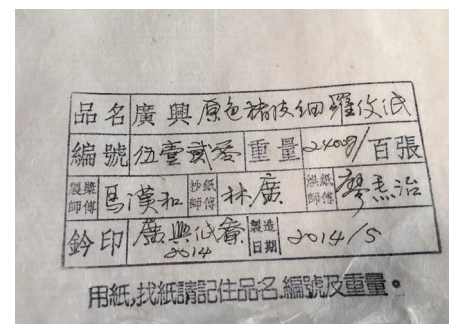 品名 廣興 原色楮皮細羅紋紙
編號 伍壹貳零 重量 2400g/百張
製漿師傅 馬漢和 抄紙師傅 林廣 烘紙師傅 廖志治
鈐印 廣興紙寮 2014 製造日期 2014/5
用紙,找紙請記住品名.編號及重量。